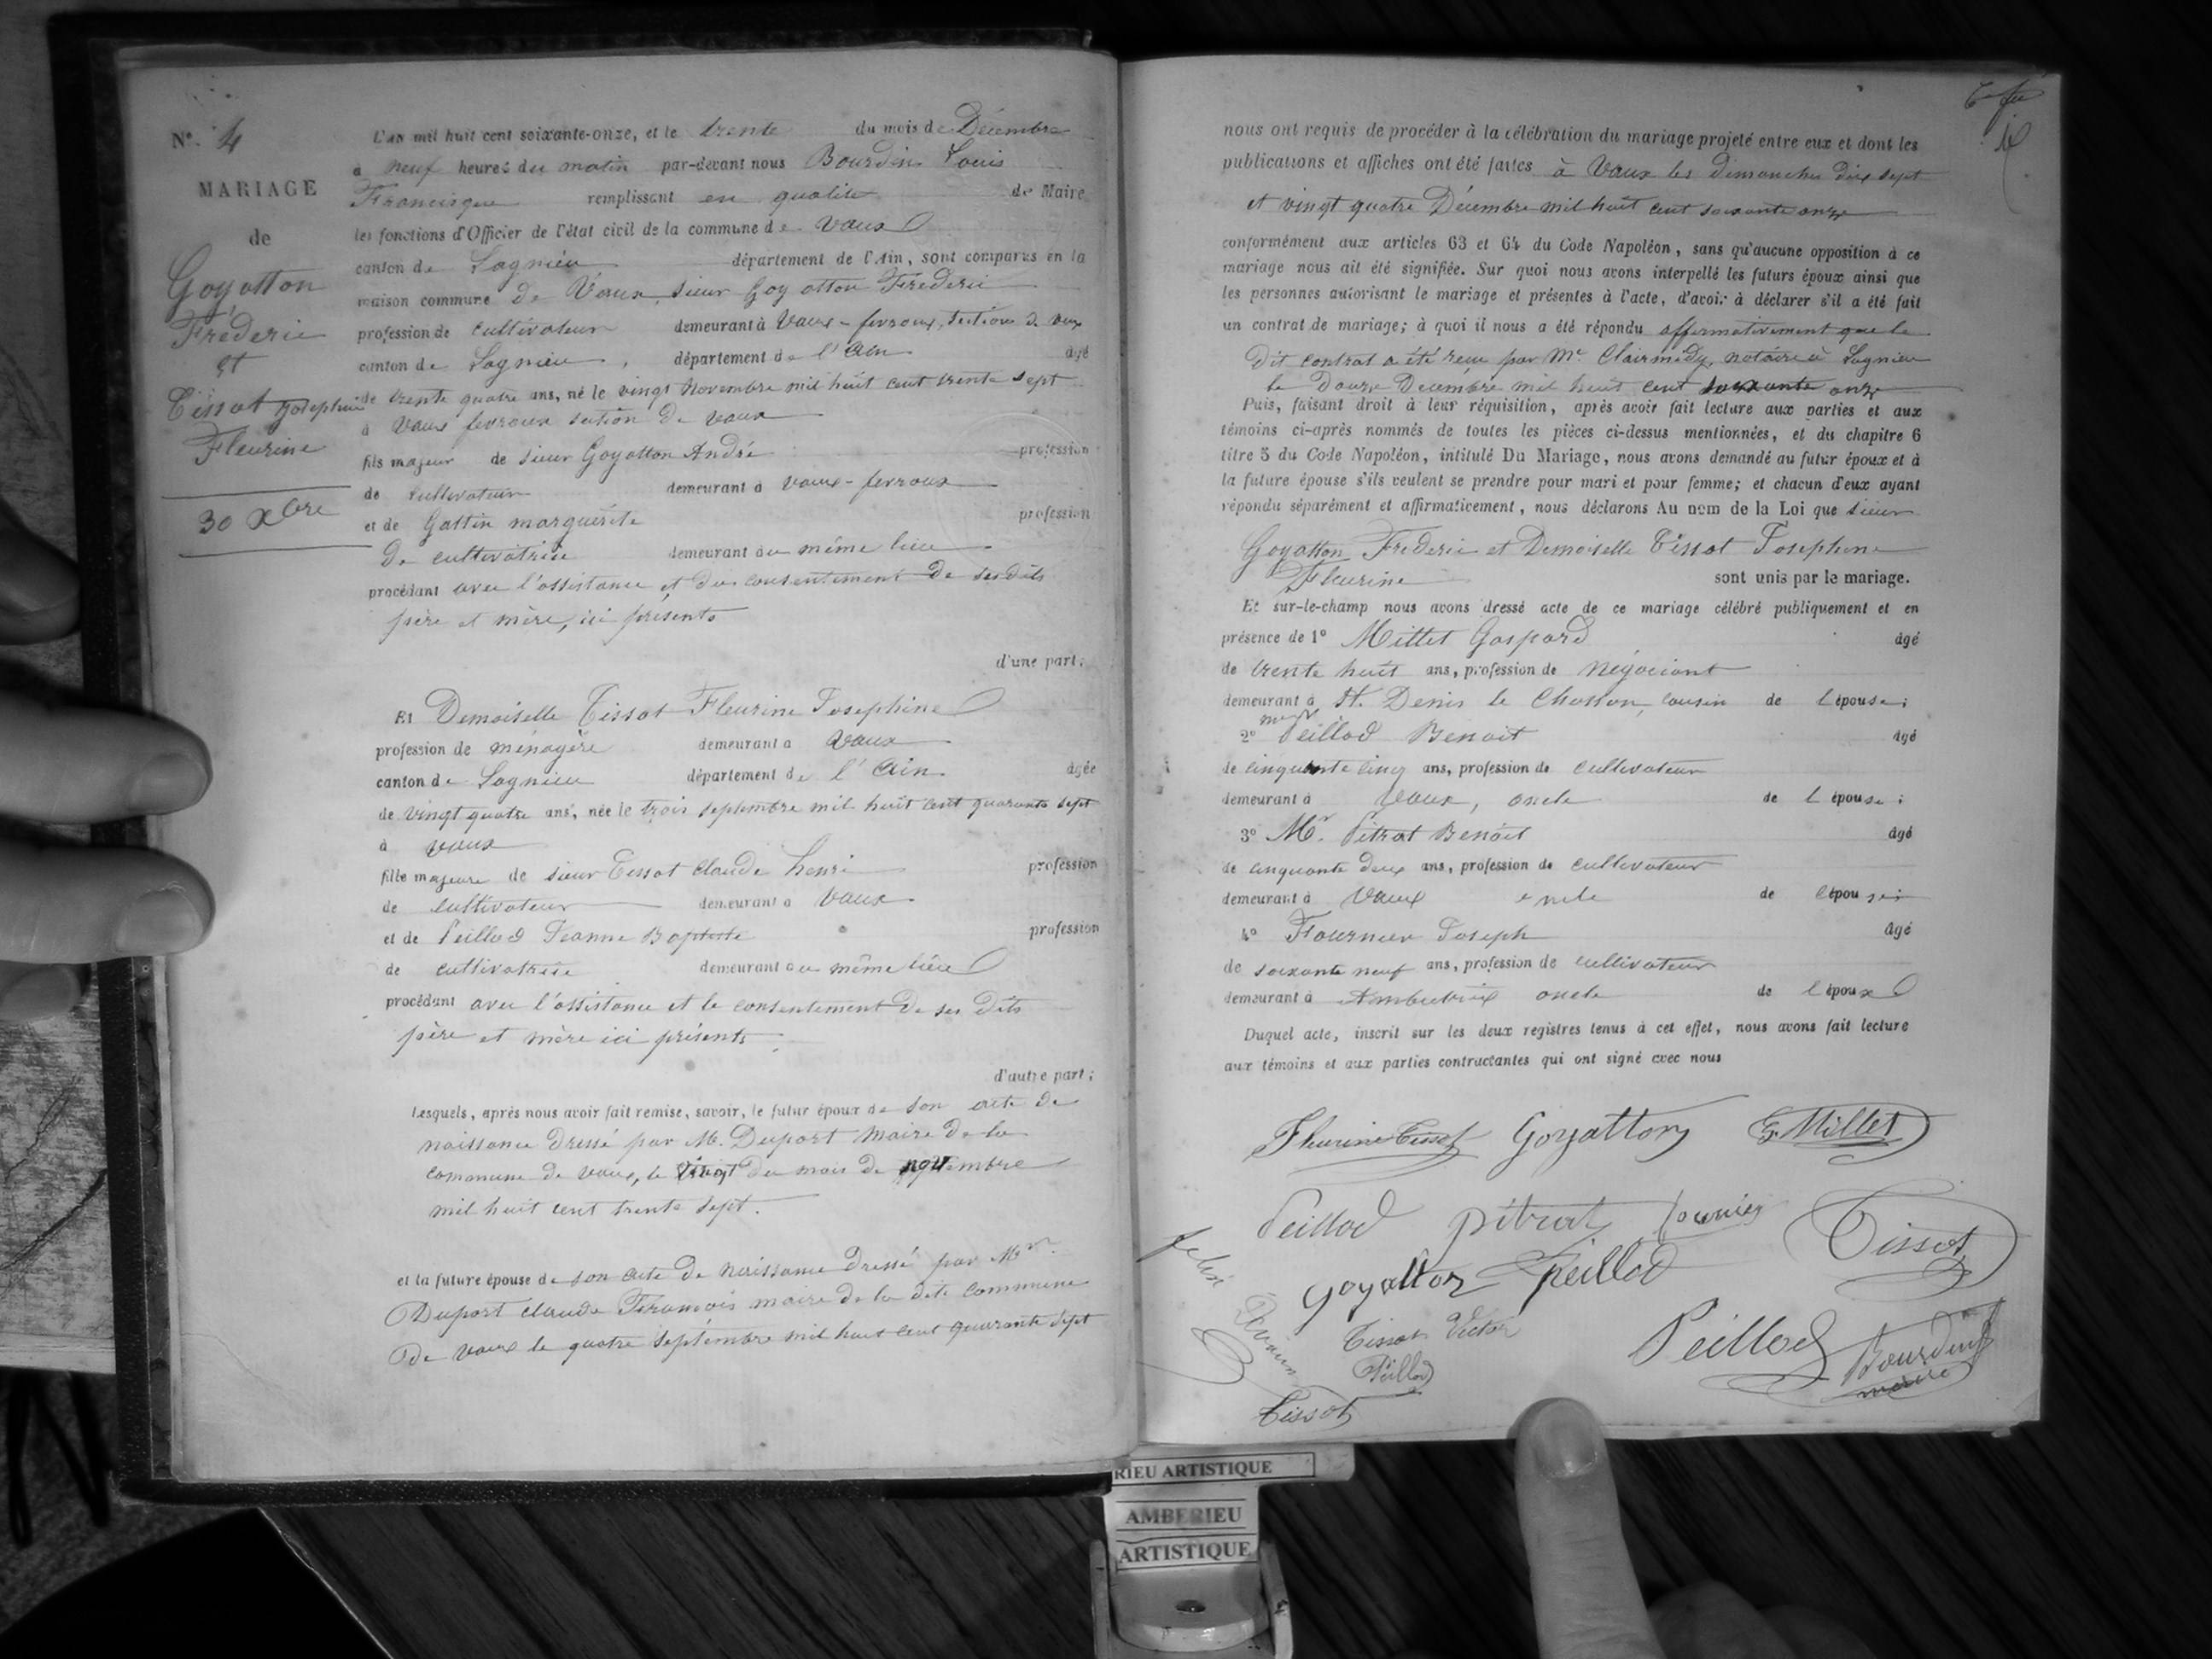 N°. 4
MARIAGE
de
Goyatton
Fréderic
et
Tissot Joséphine
Fleurine
30 Xbre
L'an mil huit cent soixante-onze, et le trente du mois de Décembre
à neuf heures du matin par-devant nous Bourdin Louis
Francisque remplissant en qualité de Maire
les fonctions d'Officier de l'état civil de la commune de Vaux
canton de Lagnieu département de l'Ain, sont comparus en la
maison commune de Vaux, sieur Goyatton Fréderic
profession de cultivateur demeurant à Vaux-fevroux, section de Vaux
canton de Lagnieu, département de l'Ain âgé
de trente quatre ans, né le vingt Novembre mil huit cent trente sept
à Vaux fevroux section de Vaux
fils majeur de sieur Goyatton André profession
de cultivateur demeurant à Vaux-fevroux
et de Gattin marguerite profession
de cultivatrice demeurant au même lieu
procédant avec l'assistance et du consentement de ses dits
père et mère, ici présents
d'une part;
Et Demoiselle Tissot Fleurine Josephine
profession de ménagère demeurant à Vaux
canton de Lagnieu département de l'Ain âgée
de vingt quatre ans, née le trois septembre mil huit cent quarante sept
à Vaux
fille majeure de sieur Tissot Claude henri profession
de cultivateur demeurant à Vaux
et de Peillod Jeanne Baptiste profession
de cultivatrice demeurant au même lieu
procédant avec l'assistance et le consentement de ses dits
père et mère ici présents
d'autre part;
Lesquels, après nous avoir fait remise, savoir, le futur époux de son acte de
naissance dressé par M. Duport Maire de la
commune de Vaux, le vingt du mois de novembre
mil huit cent trente sept.
et la future épouse de son acte de naissance dressé par Mr.
Duport claude François maire de la dite commune
de Vaux le quatre septembre mil huit cent quarante sept
nous ont requis de procéder à la célébration du mariage projeté entre eux et dont les
publications et affiches ont été faites à Vaux les dimanches dix sept
et vingt quatre Décembre mil huit cent soixante onze
conformément aux articles 63 et 64 du Code Napoléon, sans qu'aucune opposition à ce
mariage nous ait été signifiée. Sur quoi nous avons interpellé les futurs époux ainsi que
les personnes autorisant le mariage et présentes à l'acte, d'avoir à déclarer s'il a été fait
un contrat de mariage; à quoi il nous a été répondu affirmativement que le
dit contrat a été reçu par Me Clairmidy, notaire à Lagnieu
le douze Decembre mil huit cent soixante onze
Puis, faisant droit à leur réquisition, après avoir fait lecture aux parties et aux
témoins ci-après nommés de toutes les pièces ci-dessus mentionnées, et du chapitre 6
titre 5 du Code Napoléon, intitulé Du Mariage, nous avons demandé au futur époux et à
la future épouse s'ils veulent se prendre pour mari et pour femme; et chacun d'eux ayant
répondu séparément et affirmativement, nous déclarons Au nom de la Loi que sieur
Goyatton Fréderic et Demoiselle Tissot Josephine
Fleurine sont unis par le mariage.
Et sur-le-champ nous avons dressé acte de ce mariage célébré publiquement et en
présence de 1° Millet Gaspard âgé
de trente huit ans, profession de négociant
demeurant à St. Denis le Chosson, cousin de l'épouse;
2° Peillod Benoit âgé
de cinquante cinq ans, profession de cultivateur
demeurant à Vaux, oncle de l'épouse;
3° Mr. Pitrat Benoît âgé
de cinquante deux ans, profession de cultivateur
demeurant à Vaux oncle de l'épouse;
4° Fournier Joseph âgé
de soixante neuf ans, profession de cultivateur
demeurant à Ambutrix oncle de l'époux
Duquel acte, inscrit sur les deux registres tenus à cet effet, nous avons fait lecture
aux témoins et aux parties contractantes qui ont signé avec nous
Fleurine Tissot Goyatton G. Millet
Peillod pitrat fournier Tissot
goyatton Peillod
Tissot Victor
Peillod
Peillod Bourdin
maire
Tissot
RIEU ARTISTIQUE
AMBERIEU
ARTISTIQUE